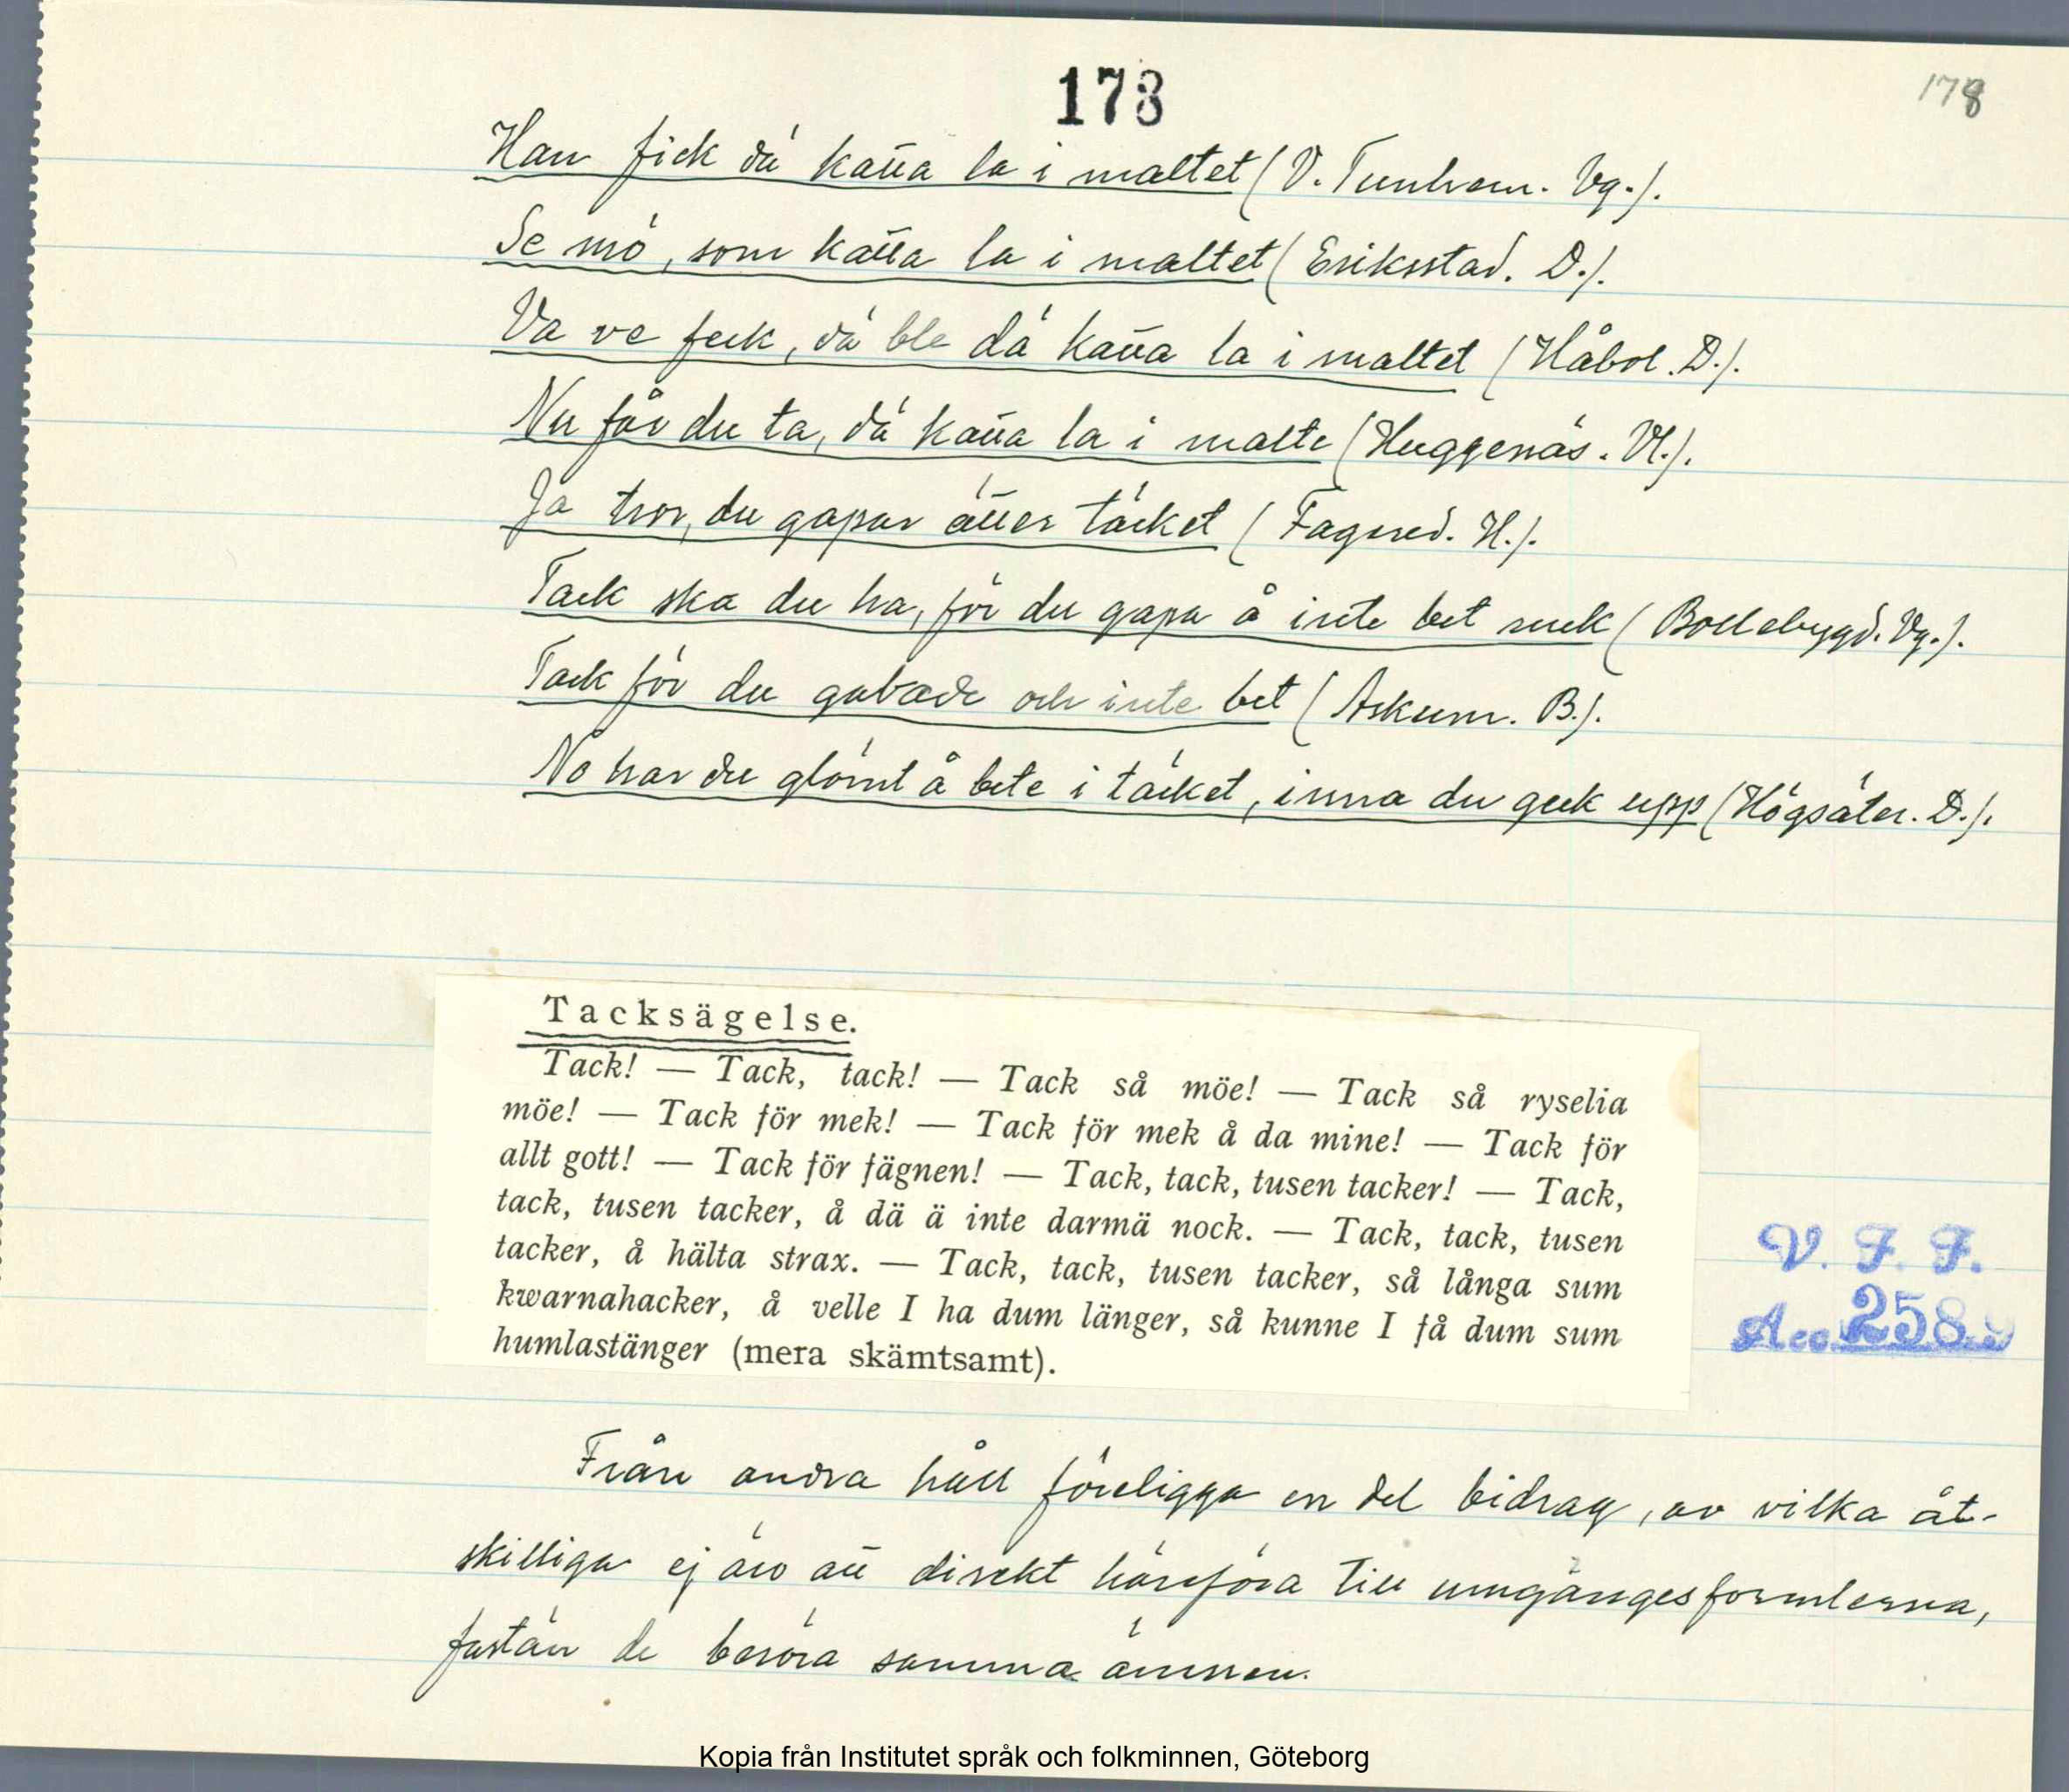 173
178
Han fick dä katta la i maltet (V. Tunhem. Vg.).
Se mö, som katta la i maltet (Eriksstad. D.).
Va ve feck, dä ble dä katta la i maltet (Håbol. D.).
Nu får du ta, dä katta la i malte (Huggenäs. Vl.).
Ja tror, du gapar ätter täcket (Fagered. H.).
Tack ska du ha, för du gapa å inte bet mek (Bollebygd. Vg.).
Tack för du gabade och inte bet (Askum. B.).
No har du glömt å bete i täcket, inna du geck upp (Högsäter. D.).
Tacksägelse.
Tack! — Tack, tack! — Tack så möe! — Tack så ryselia
möe! — Tack för mek! — Tack för mek å da mine! — Tack för
allt gott! — Tack för fägnen! — Tack, tack, tusen tacker! — Tack,
tack, tusen tacker, å dä ä inte darmä nock. — Tack, tack, tusen
tacker, å hälta strax. — Tack, tack, tusen tacker, så långa sum
kwarnahacker, å velle I ha dum länger, så kunne I få dum sum
humlastänger (mera skämtsamt).
V. F. F.
Acc. 258
Från andra håll föreligga en del bidrag, av vilka åt-
skilliga ej äro att direkt hänföra till umgängesformlerna,
fastän de beröra samma ämnen.
Kopia från Institutet språk och folkminnen, Göteborg